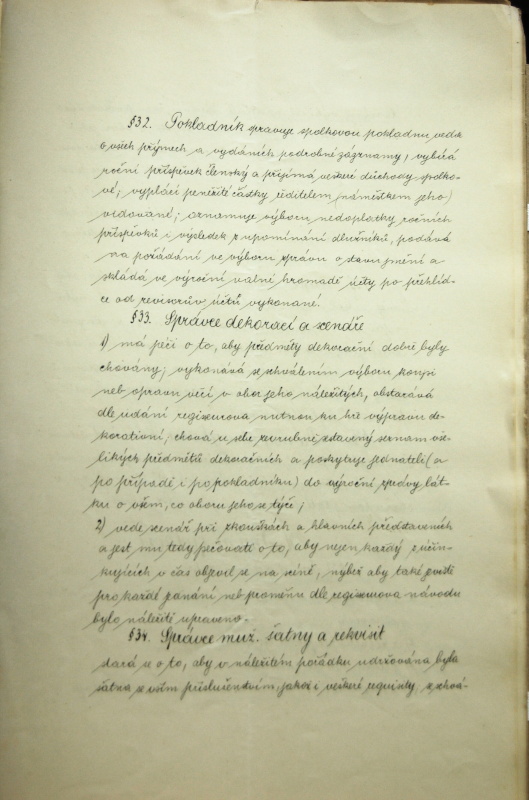 §32. Pokladník spravuje spolkovou pokladnu vede
o všech příjmech a vydáních podrobné záznamy, vybírá
roční příspěvek členský a přijímá veškeré důchody spolko-
vé; vyplácí peněžité částky ředitelem (náměstkem jeho)
poukázované; oznamuje výboru nedoplatky ročních
příspěvků i výsledek z upomínání dlužníků, podává
na požádání ve výboru zprávu o stavu jmění a
skládá ve výroční valné hromadě účty po přehlíd-
ce od revisorův účtů vykonané.
§33. Správce dekorací a scenáře
1) má péči o to, aby předměty dekorační dobře byly
chovány; vykonává se schválením výboru koupi
neb opravu věcí v obor jeho náležitých, obstarává
dle udání regisseurova nutnou ku hře výpravu de-
korativní; chová u sebe zevrubně sestavený seznam vše-
likých předmětů dekoračních a poskytuje jednateli (a
po případě i pokladníku) do výroční zprávy lát-
ku o všem, co oboru jeho se týče;
2) vede scenář při zkouškách a hlavních představeních
a jest mu tedy pečovati o to, aby nejen každý z účin-
kujících v čas objevil se na scéně, nýbrž aby také jeviště
pro každé jednání neb proměnu dle regisseurova návodu
bylo náležitě upraveno.
§34. Správce muž. šatny a rekvisit
stará se o to, aby v náležitém pořádku udržována byla
šatna se vším příslušenstvím, jakož i veškeré requisity, z schvá-